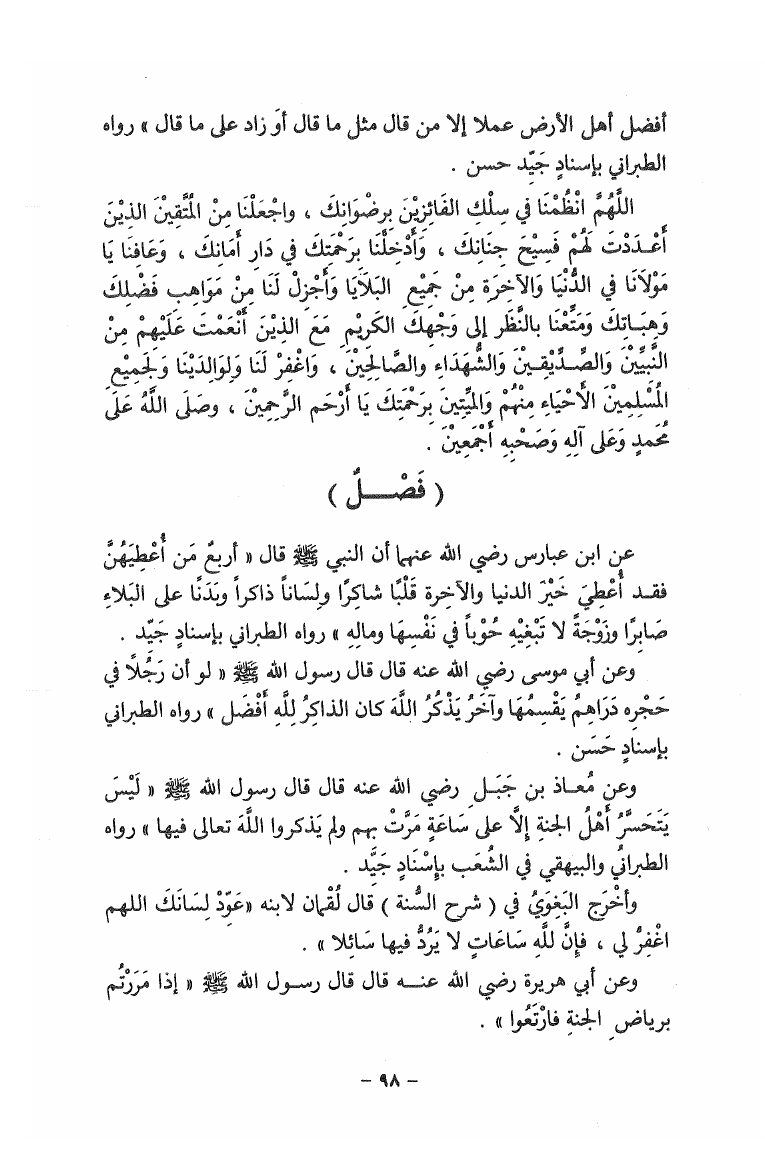 أفضل أهل الأرض عملا إلا من قال مثل ما قال أوَ زاد على ما قال » رواه
الطبراني بإسنادٍ جَيِّد حسن .
اللَّهُمَّ انْظُمْنَا في سِلْكِ الفَائِزِيْنَ بِرِضْوَانِكَ ، واجْعَلْنَا مِنْ المُتَّقِيْنَ الذِيْنَ
أَعْـدَدْتَ لَهُمْ فَسِيْحَ جِنَانِكَ ، وَأَدْخِلْنَا بِرَحْمَتِكَ في دَارِ أَمَانِكَ ، وَعَافِنَا يَا
مَوْلَانَا في الدُّنْيَا وَالآخِرَة مِنْ جَمِيْعِ البَلَايَا وَأَجْزِلْ لَنَا مِنْ مَوَاهِبِ فَضْلِكَ
وَهِبَـاتِكَ وَمَتِّعْنَا بالنَّظَرِ إلى وَجْهِكَ الكَرِيْمِ مَعَ الذِيْنَ أَنْعَمْتَ عَلَيْهِمْ مِنْ
النَّبِيِّيْنَ وَالصِّـدِّيْقِـيْنَ وَالشُّهَدَاءِ والصَّالِحِيْنَ ، وَاغْفِرْ لَنَا وَلِوَالِدَيْنَا وَلِجَمِيْعِ
المُسْلِمِيْنَ الأَحْيَاءِ مِنْهُمْ وَالمَيِّتِينَ بِرَحْمَتِكَ يَا أَرْحَم الرَّحِمِينَ ، وصَلَى اللَّهُ عَلَى
مُحَمدٍ وَعَلى آلِهِ وَصَحْبِهِ أَجْمَعِيْنَ .
( فَصْــــلٌ )
عن ابن عبارس رضي الله عنهما أن النبي ﷺ قال « أربعٌ مَن أُعْطِيَهُنَّ
فقـد أُعْطِيَ خَيْرَ الدنيا والآخرة قَلْبًا شاكِرًا ولِسَاناً ذاكراً وبَدَنًا على البَلاءِ
صَابِرًا وزَوْجَةً لا تَبْغِيْهِ حُوْباً في نَفْسِهَا ومالِهِ » رواه الطبراني بإسنادٍ جَيِّد .
وعن أبي موسى رضي الله عنه قال قال رسول الله ﷺ « لو أن رَجُلًا في
حَجْرِه دَرَاهِمُ يَقْسِمُهَا وآخَرُ يَذْكُرُ اللَّهَ كان الذاكِرُ لِلَّهِ أَفْضَل » رواه الطبراني
بإسنادٍ حَسَن .
وعن مُعـاذ بن جَبَـلٍ رضي الله عنه قال قال رسول الله ﷺ « لَيْسَ
يَتَحَسَّرُ أَهْلُ الجنةِ إِلَّا على سَاعَةٍ مَرَّتْ بهم ولم يَذكروا اللَّهَ تعالى فيها » رواه
الطبرانيُ والبيهقي في الشُعَب بِإِسْنَادٍ جَيَّد .
وأخْرج البَغَوِيُ في ( شرح السُنة ) قال لُقْمان لابنه «عَوِّدْ لِسَانَكَ اللهم
اغْفِرْ لي ، فإنَّ للَّهِ سَاعَاتٍ لا يَرُدُّ فيها سَائِلا » .
وعن أبي هريرة رضي الله عنــه قال قال رسـول الله ﷺ « إذا مَرَرْتُم
برياضِ الجنةِ فارْتَعُوا » .
– ٩٨ –